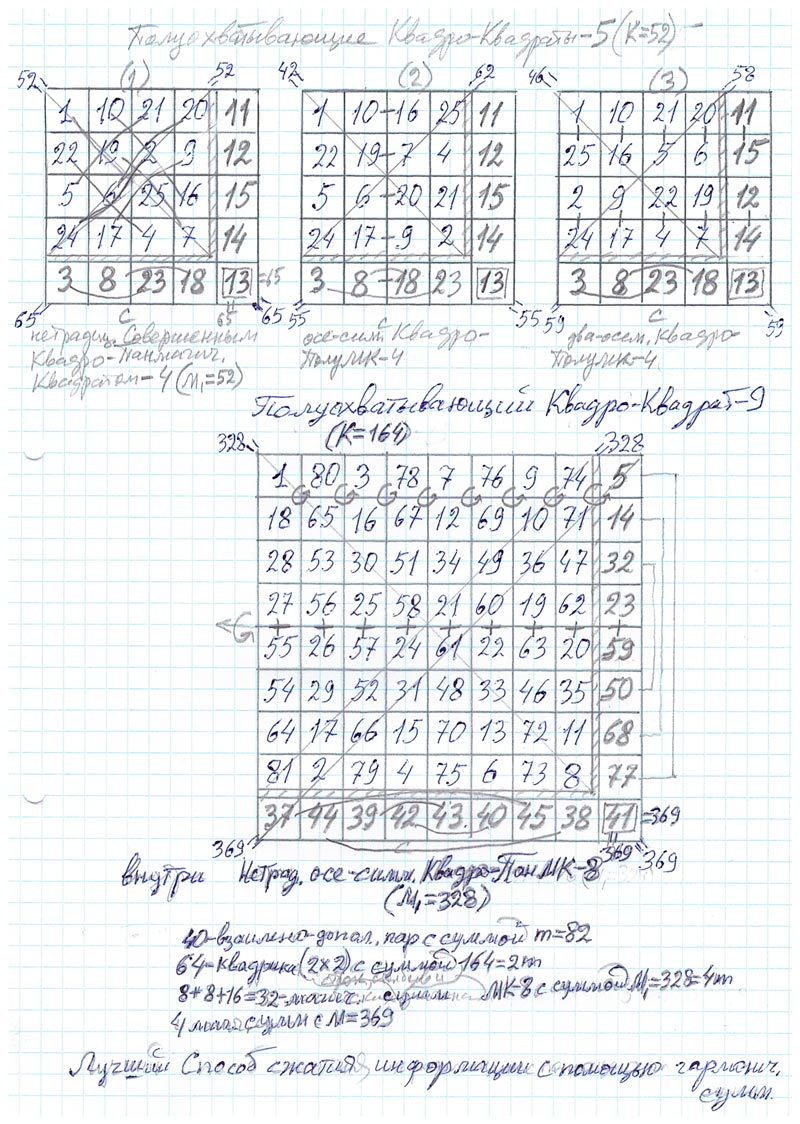 Полуохватывающие Квадро-Квадраты-5 (K=52)
52 (1) 52 42 (2) 62 46 (3) 58
1 10 21 20 11
22 19 2 9 12
5 6 25 16 15
24 17 4 7 14
3 8 23 18 13 =65
65 C 65 65
нетрадиц. Совершенным
Квадро-Панмагич.
Квадратом-4 (M₁=52)
1 10 16 25 11
22 19 7 4 12
5 6 20 21 15
24 17 9 2 14
3 8 18 23 13
55 C 55
осе-сим. Квадро-
ПолуМК-4
1 10 21 20 11
25 16 5 6 15
2 9 22 19 12
24 17 4 7 14
3 8 23 18 13
59 C 59
два-осем. Квадро-
ПолуМК-4
Полуохватывающий Квадро-Квадрат-9
(K=164)
328 328
1 80 3 78 7 76 9 74 5
18 65 16 67 12 69 10 71 14
28 53 30 51 34 49 36 47 32
27 56 25 58 21 60 19 62 23
55 26 57 24 61 22 63 20 59
54 29 52 31 48 33 46 35 50
64 17 66 15 70 13 72 11 68
81 2 79 4 75 6 73 8 77
37 44 39 42 43 40 45 38 41 =369
369 C 369 369
внутри Нетрад. осе-симм. Квадро-ПанМК-8
(M₁=328)
40-взаимно-допол. пар с суммой m=82
64-квадрика (2x2) с суммой 164=2m
8+8+16=32-магич. сумм МК-8 с суммой M₁=328=4m
4 магич сумм с M=369
Лучший Способ сжатия информации с помощью гармонич.
сумм.